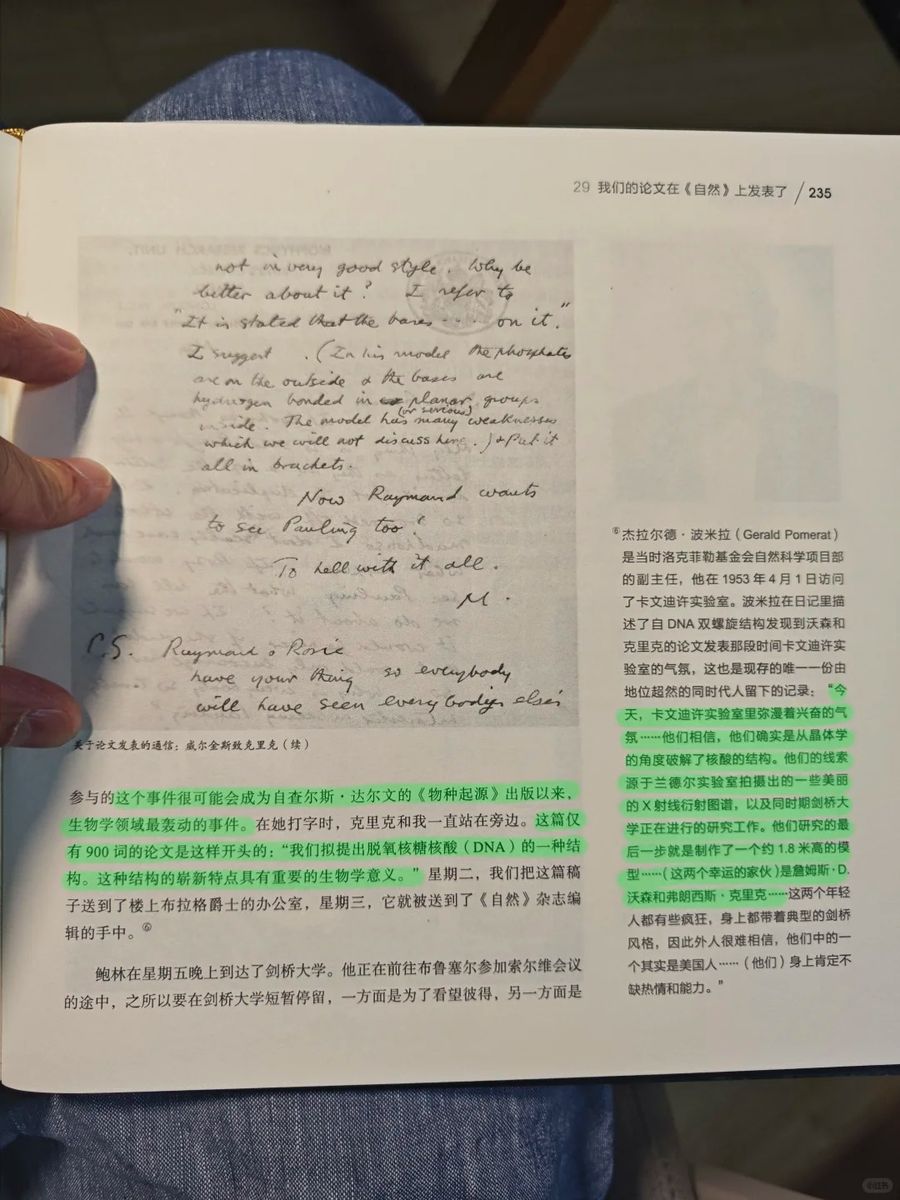 29 我们的论文在《自然》上发表了 / 235
not in very good style. Why be
better about it? I refer to
"It is stated that the bases .... on it."
I suggest . (In his model the phosphates
are on the outside & the bases are
hydrogen bonded in planar groups
inside. The model has many (or serious) weaknesses
which we will not discuss here.) & Put it
all in brackets.
Now Raymond wants
to see Pauling too!
To hell with it all.
M.
P.S. Raymond & Rosie
have your thing so everybody
will have seen everybody else's
关于论文发表的通信：威尔金斯致克里克（续）
参与的这个事件很可能会成为自查尔斯·达尔文的《物种起源》出版以来，
生物学领域最轰动的事件。在她打字时，克里克和我一直站在旁边。这篇仅
有 900 词的论文是这样开头的：“我们拟提出脱氧核糖核酸（DNA）的一种结
构。这种结构的崭新特点具有重要的生物学意义。”星期二，我们把这篇稿
子送到了楼上布拉格爵士的办公室，星期三，它就被送到了《自然》杂志编
辑的手中。⑥
鲍林在星期五晚上到达了剑桥大学。他正在前往布鲁塞尔参加索尔维会议
的途中，之所以要在剑桥大学短暂停留，一方面是为了看望彼得，另一方面是
⑥杰拉尔德·波米拉（Gerald Pomerat）
是当时洛克菲勒基金会自然科学项目部
的副主任，他在 1953 年 4 月 1 日访问
了卡文迪许实验室。波米拉在日记里描
述了自 DNA 双螺旋结构发现到沃森和
克里克的论文发表那段时间卡文迪许实
验室的气氛，这也是现存的唯一一份由
地位超然的同时代人留下的记录：“今
天，卡文迪许实验室里弥漫着兴奋的气
氛……他们相信，他们确实是从晶体学
的角度破解了核酸的结构。他们的线索
源于兰德尔实验室拍摄出的一些美丽
的 X 射线衍射图谱，以及同时期剑桥大
学正在进行的研究工作。他们研究的最
后一步就是制作了一个约 1.8 米高的模
型……（这两个幸运的家伙）是詹姆斯·D.
沃森和弗朗西斯·克里克……这两个年轻
人都有些疯狂，身上都带着典型的剑桥
风格，因此外人很难相信，他们中的一
个其实是美国人……（他们）身上肯定不
缺热情和能力。”
小红书